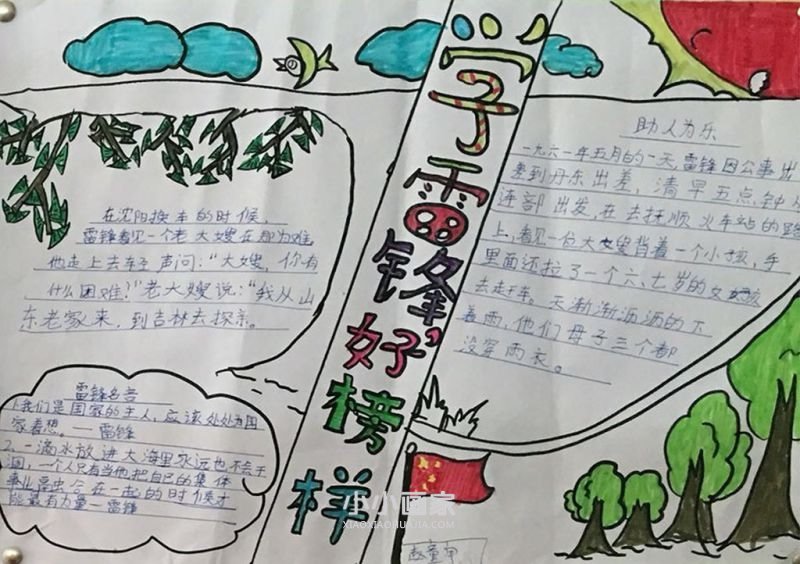 学雷锋好榜样
在沈阳换车的时候，
雷锋看见一个老大嫂在那为难，
他走上去轻声问：“大嫂，你有
什么困难？”老大嫂说：“我从山
东老家来，到吉林去探亲。
雷锋名言
1、我们是国家的主人，应该处处为国
家着想。——雷锋
2、一滴水放进大海里永远也不会干
涸，一个人只有当他把自己的集体
事业融合在一起的时候才
能最有力量—雷锋
助人为乐
一九六一年五月的一天，雷锋因公事出
差到丹东出差，清早五点钟从
连部出发，在去抚顺火车站的路
上，看见一位大嫂背着一个小孩，手
里面还拉了一个六、七岁的女孩
去赶车。天淅淅沥沥的下
着雨，他们母子三个都
没穿雨衣。
小小画家
XIAOXIAOHUAJIA.COM